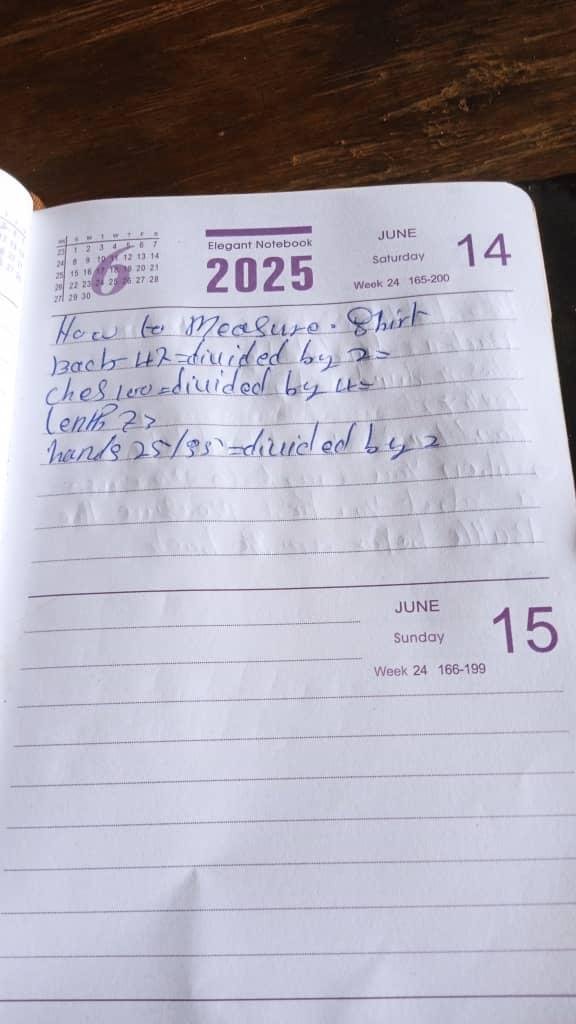 Elegant Notebook
2025
JUNE
Saturday
14
Week 24 165-200
WK S M T W T F S
23 1 2 3 4 5 6 7
24 8 9 10 11 12 13 14
25 15 16 17 18 19 20 21
26 22 23 24 25 26 27 28
27 29 30
6
How to Measure. Shirt
Back 42=divided by 2=
ches 100=divided by 4=
lenth
hands 25/35=divided by 2
JUNE
Sunday
15
Week 24 166-199